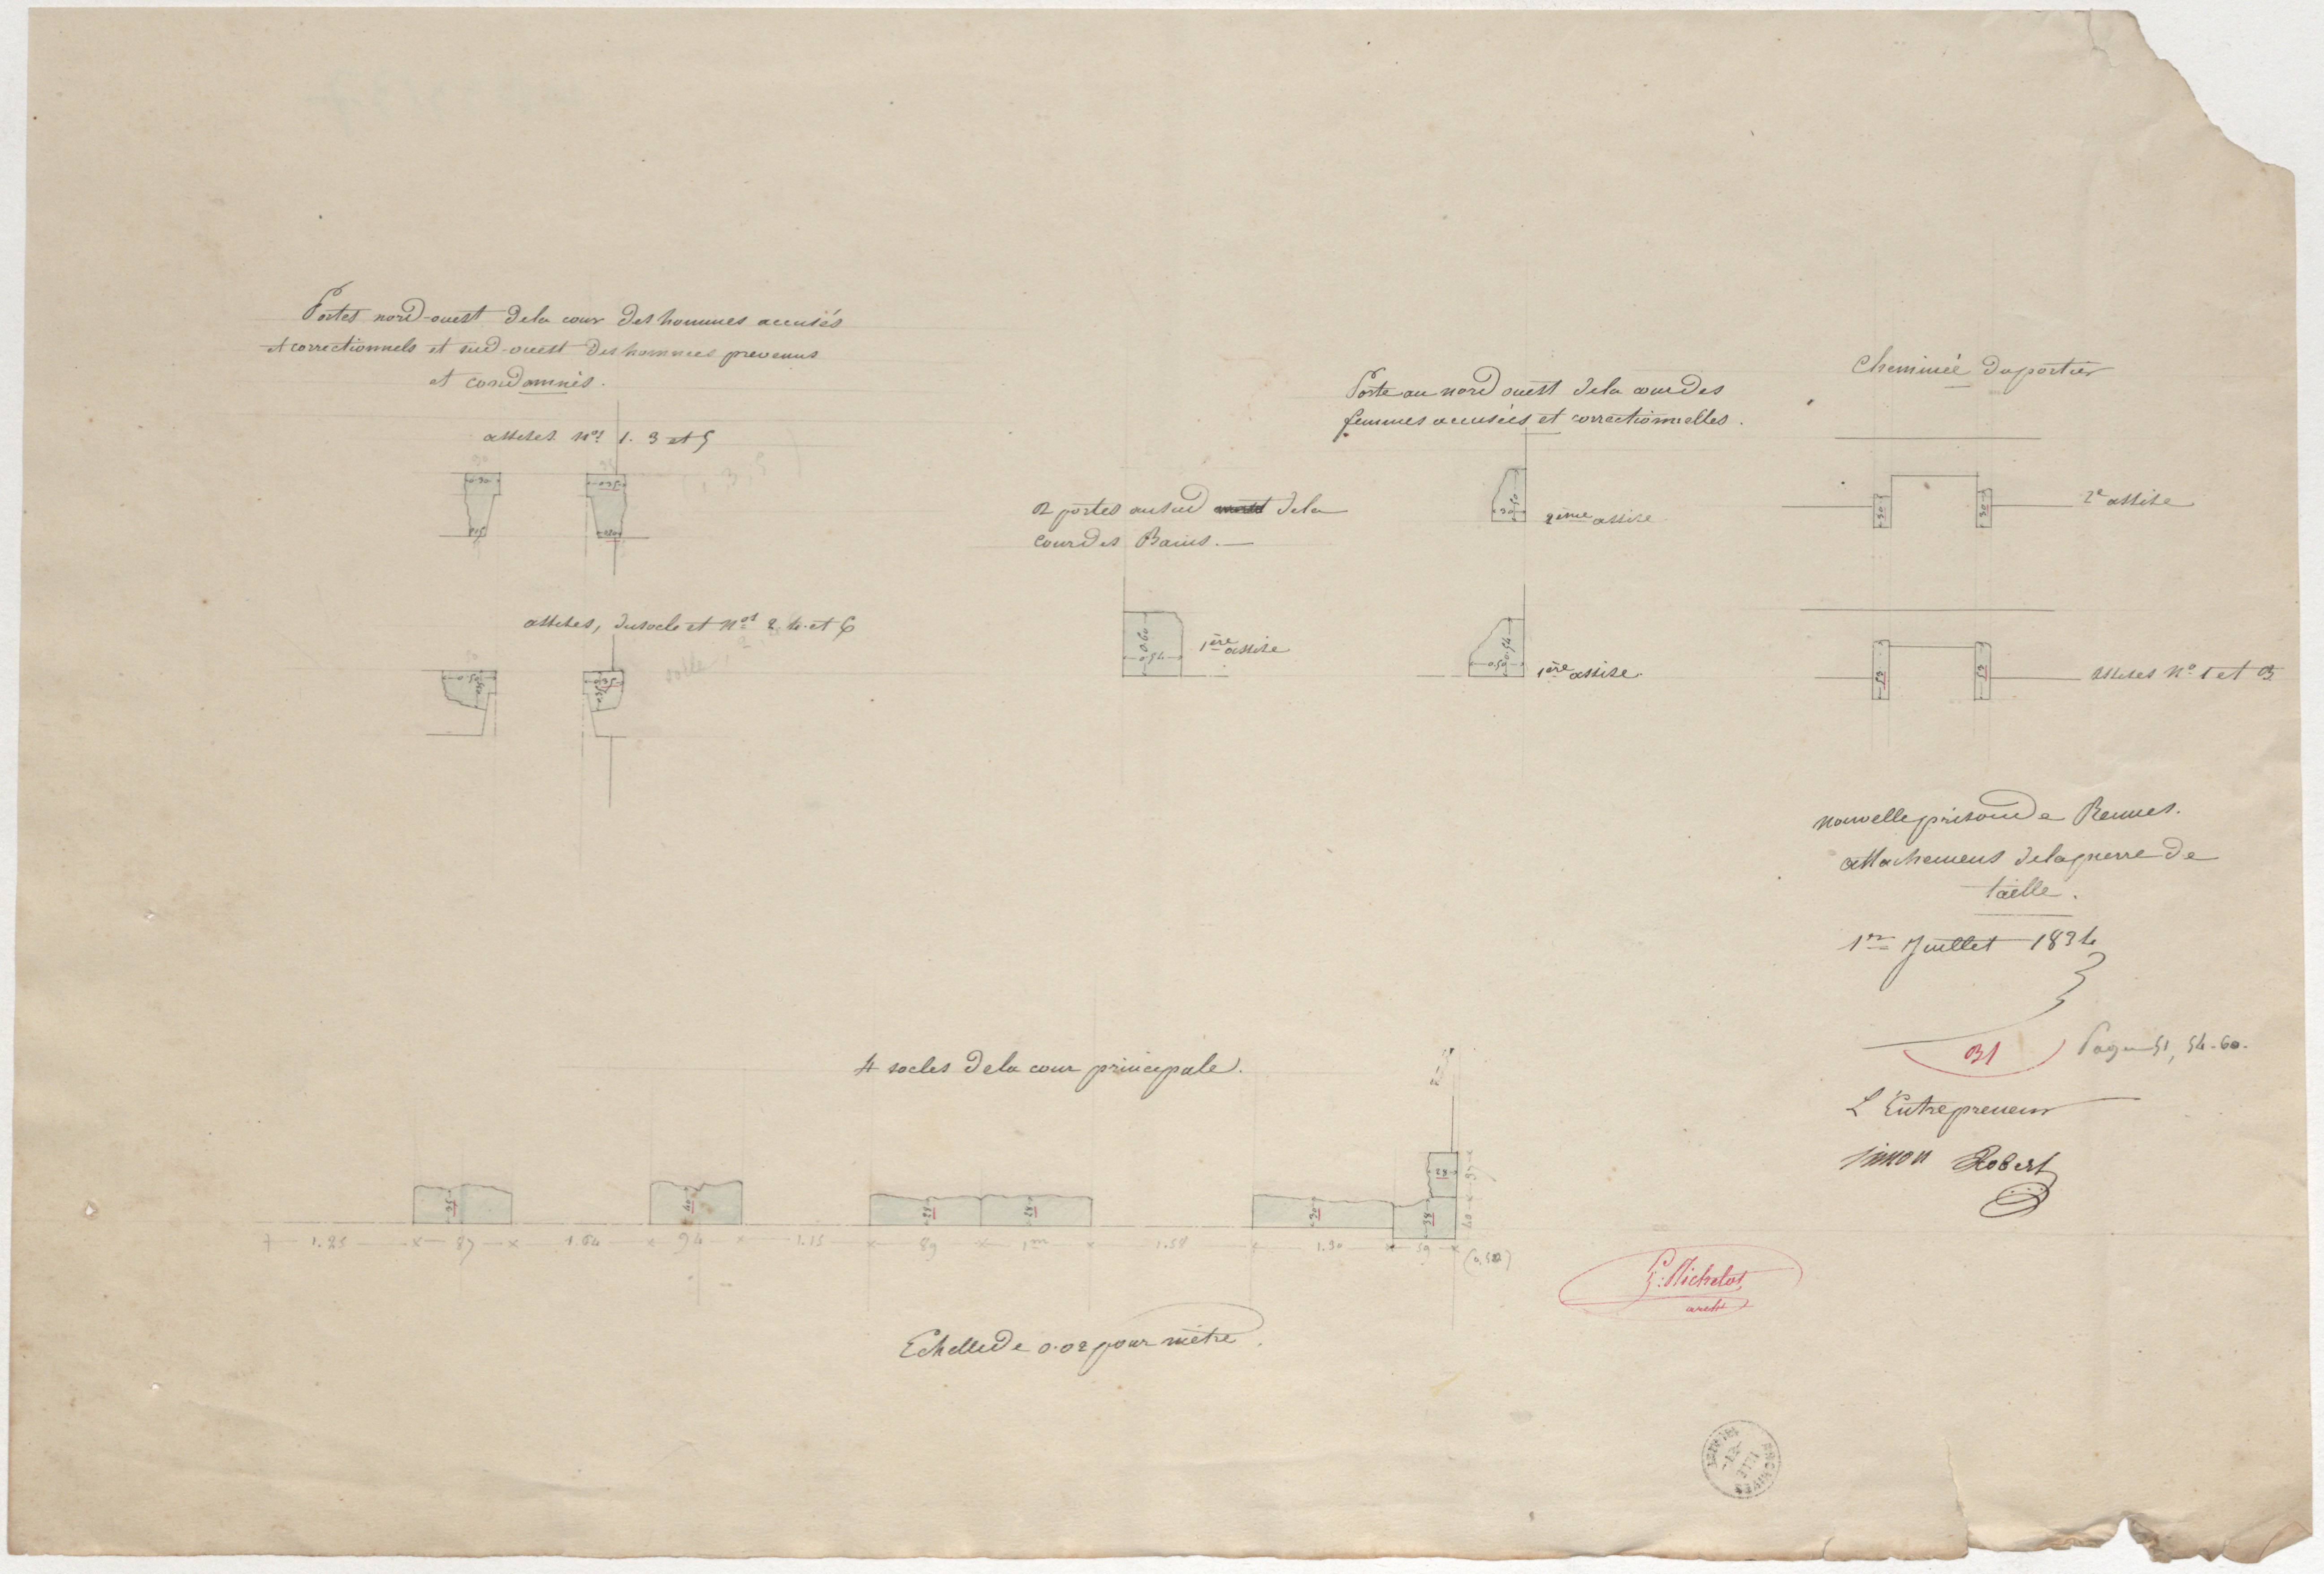 Portes nord-ouest de la cour des hommes accusés
et correctionnels et sud-ouest des hommes prevenus
et condamnés.
assises Nos 1. 3 et 5
0.30
0.35
assises, du socle et Nos 2. 4. et 6
0.50
0.35
socle
2 portes au sud de la
cour des Bains.
0.60
0.54
1ère assise
Porte au nord ouest de la cour des
femmes accusées et correctionnelles.
0.50
30
2ème assise
0.54
0.50
1ère assise.
Cheminée du portier
30
30
2e assise
53
53
assises No 1 et 3
nouvelle prison de Rennes.
attachemens de la pierre de
taille.
1er Juillet 1834
31
Pages 51, 54-60.
L'Entrepreneur
Simon Robert
4 socles de la cour principale.
35
40
28
28
30
38
28
37
40
1.25
87
1.64
94
1.15
89
1m
1.58
1.30
59
G. Michelot
arch
Echelle de 0.02 pour mètre.
ARCHIVES